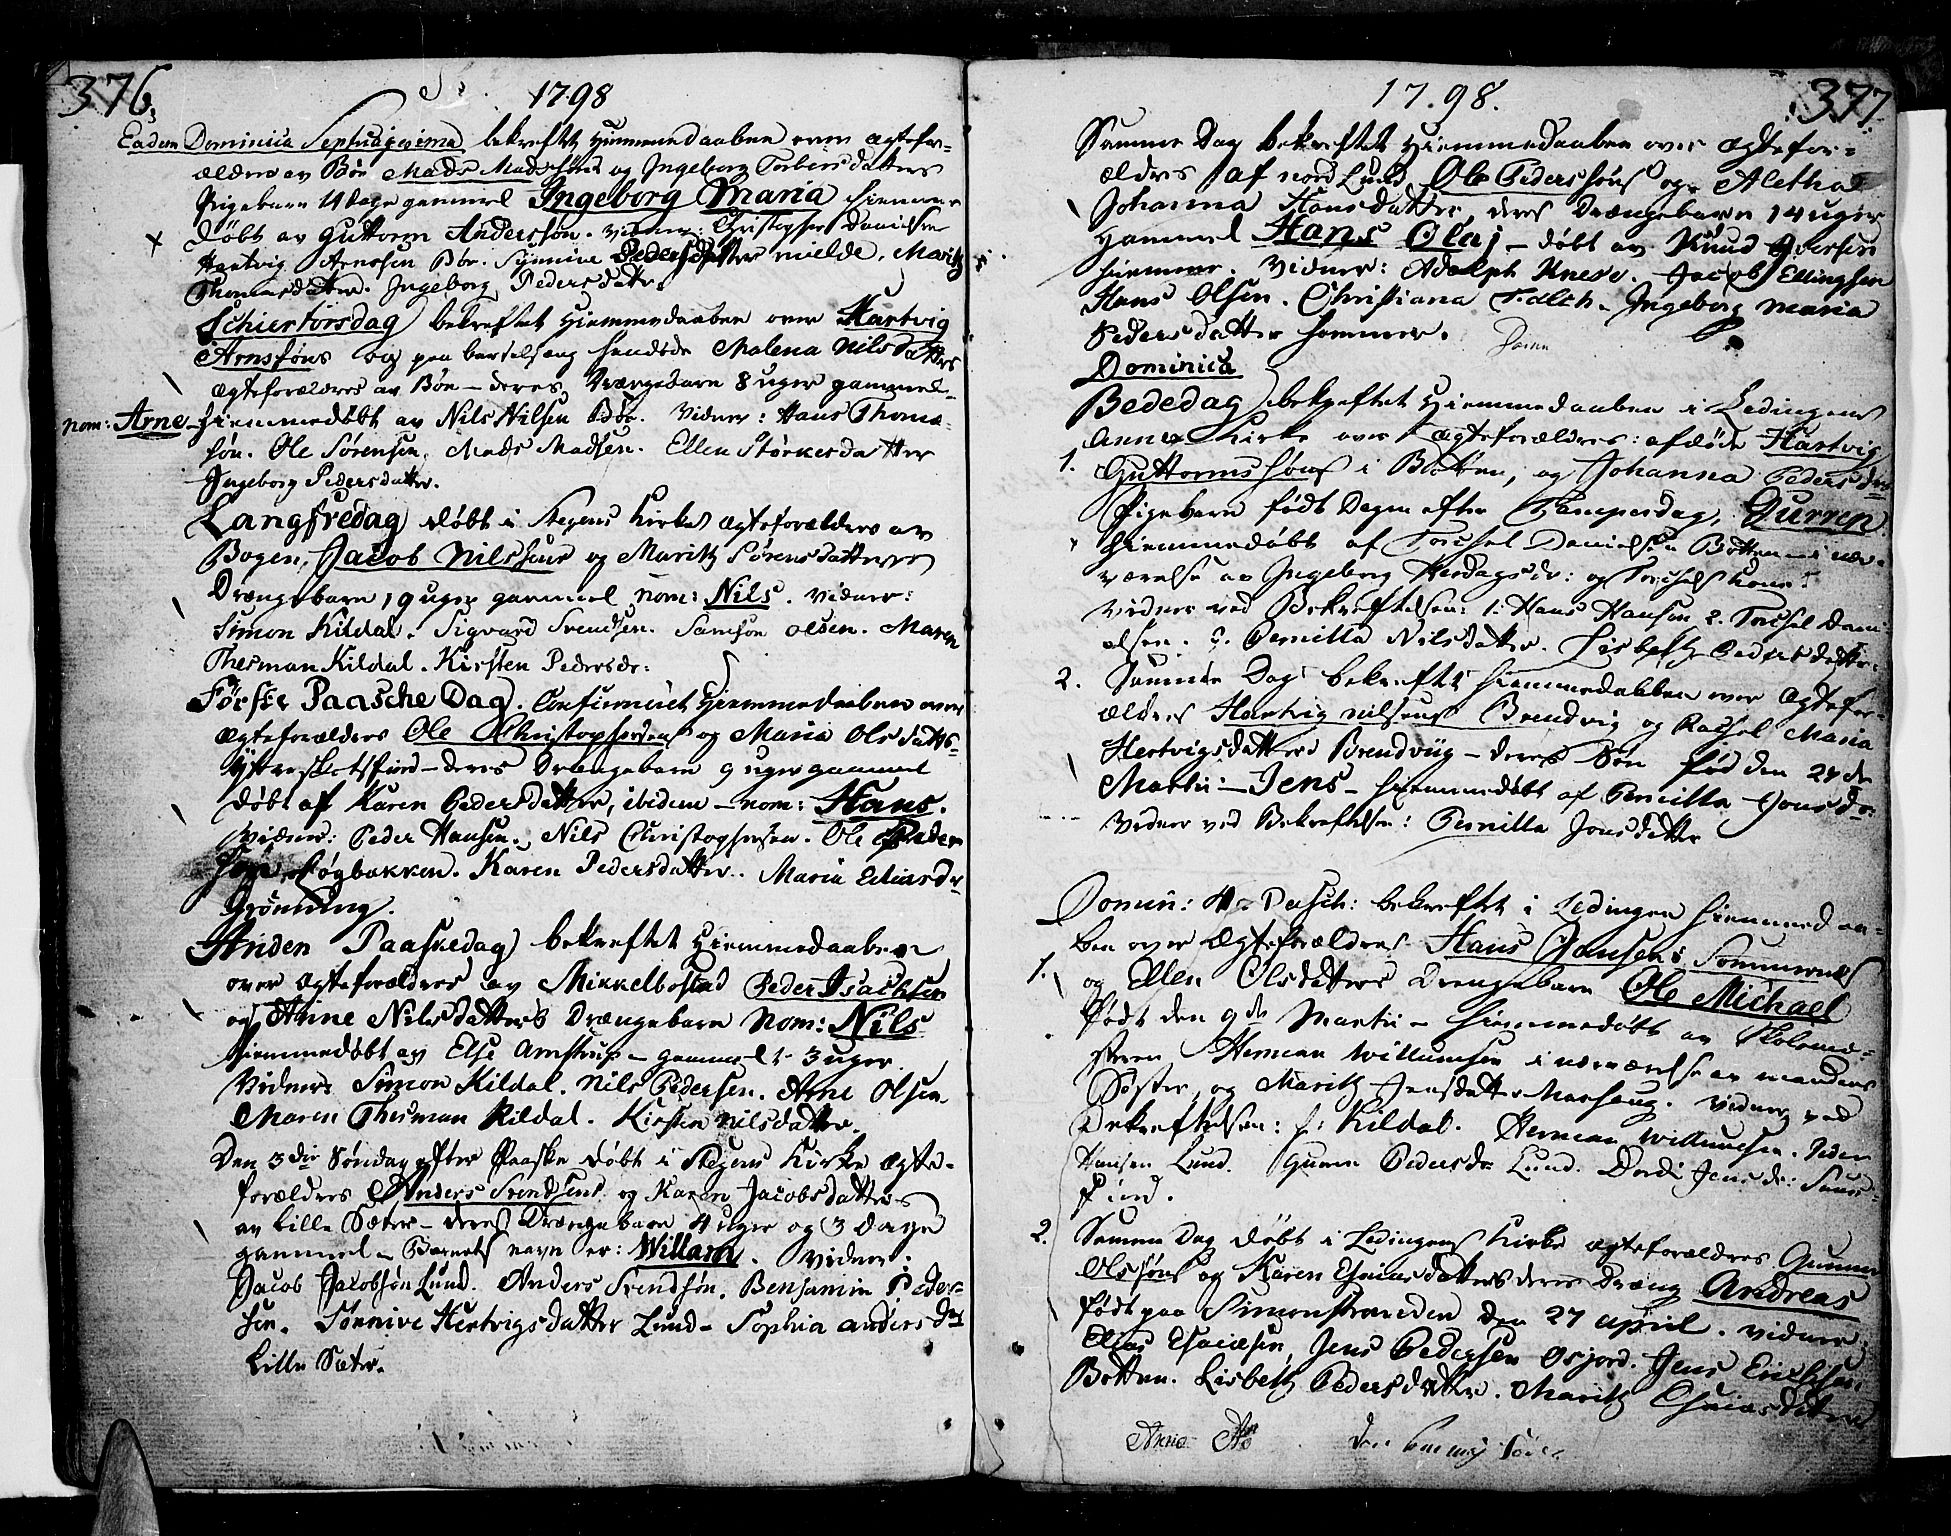 376.
1798
Eadem Dominica Septuagesima bekreftet Hiemmedaaben over Ægtefor-
ældres av Böe Mads Madssöns og Ingeborg Torbersdatters
Pigebarn 14 dage gammel Ingeborg Maria hiemme
döbt av Guttorm Anderssøn. Vidner: Christopher Danielsen
Hartvig Arnessen Böe. Synnive Pedersdatter Mielde. Marith
Thomasdatter. Ingeborg Pedersdatter.
Schiertorsdag bekreftet Hiemmedaaben over Hartvig
Arnsföns og paa barselseng hendöde Malena Nilsdatters
Ægteforældres av Böe – deres Drængebarn 8 uger gammel
nom: Arne hiemmedöbt av Nils Nilsen Böe. Vidner: Hans Thoma-
sön. Ole Sörensen. Mads Madsen. Ellen Störkersdatter
Ingeborg Pedersdatter.
Langfredag döbt i Stegens Kirke Ægteforældres av
Bogen, Jacob Nilssens og Marith Sörensdatters
Drængebarn 19 uger gammel nom: Nils. Vidner:
Simon Kildal. Sigvard Svendsen. Samson Olsen. Maren
Thesman Kildal. Kirsten Pedersdr:
Förster Paasche Dag. Confirmeret Hiemmedaaben over
Ægteforældres Ole Christophersens og Maria Olsdatts-
– deres Drengebarn 9 uger gammel
döbt af Karen Pedersdatter, ibidem – nom: Hans.
Vidner: Peder Hansen. Nils Christophersen. Ole Peder
sen Högbakken. Karen Pedersdatter. Maria Eliasdr
Grönning.
Anden Paaskedag bekreftet Hiemmedaaben
over Ægteforældres av Mikkelbostad Peder Isachsen
og Anne Nilsdatters Drængebarn Nom: Nils
hiemmedöbt av Else Amstrup – gammel 3 uger
Vidner: Simon Kildal. Nils Pedersen. Arne Olsen
Maren Thesman Kildal. Kirsten Nilsdatter.
Den 3die Söndag efter Paaske döbt i Stegens Kirke Ægte-
forældres Anders Svendsens og Karen Jacobsdatters
av Lille Sæter – deres Drængebarn 4 uger og 3 dage
gammel – Barnets navn er: Willam. Vidner:
Jacob Jacobsön Lund. Anders Svendsön. Benjamin Peder-
sen. Sönnive Hertvigsdatter Lund – Sophia Andersdtr
Lille Sæter.
1798.
377.
Samme Dag bekreftet Hiemmedaaben over Ægtefor-
ældres af Nord Lund Ole Pederssöns og Aletha
Johanna Hansdatter, deres Drængebarn 14 uger
gammel Hans Olaj – döbt av Knud Iversen
hiemme. Vidner: Adolph Knes. Jacob Ellingsen
Hans Olsen. Christiana Falch. Ingeborg Maria
Pedersdatter Sommer.
Dominica
Bededag bekreftet Hiemmedaaben i Lödingens
Annex Kirke over Ægteforældres: afdöde Hartvig
1. Guttormssöns i Botten, og Johanna Pedersdrs
Pigebarn födt Dagen efter Tamperdag, Gurren
hiemmedöbt af Torchel Danielsen Botten i nær-
værelse av Ingeborg Herdagsdr: og Torchels kone.
Vidner ved Bekreftelsen: 1. Hans Hansen 2. Torchel Dani
elsen. 3. Pernilla Nilsdatter. Lisbeth Pedersdatter.
2. Samme Dag bekreftet Hiemmedaaben over Ægtefor-
ældres Hartvig Nilsens Brendvig og Rachel Maria
Hertvigsdatters Brendviig – deres Sön föd den 24de
Martii – Jens – hiemmedöbt af Pernilla Jonsdr:
Vidner ved Bekreftelsen: Pernilla Jonsdatter
Domin: 4 p. Pasch: bekreftet i Lödingen hiemmedaa-
ben over Ægteforældres Hans Hansens Sommernes
1. og Ellen Olsdatters Drengebarn Ole Michael
födt den 9de Martii – hiemmedöbt av Skolemé-
steren Herman Willumsen i nærværelse av mandens
Söster, og Marith Jensdatter . Vidner ved
Bekreftelsen: S: Kildal. Herman Willumsen. Peder
Hansen Lund. Guren Pedersdr Lund. Dordi Jensdr:
fiord.
2. Samme Dag döbt i Lödingens Kirke Ægteforældres Gunner
Olssöns og Karen Esaiasdatters deres Dræng Andreas
födt paa Simonstranden den 27 april. Vidner:
Elias Esaiæsen, Jens Pedersen Osjord. Jens Erichsen
Botten. Lisbeth Pedersdatter. Marith Esaiasdatter